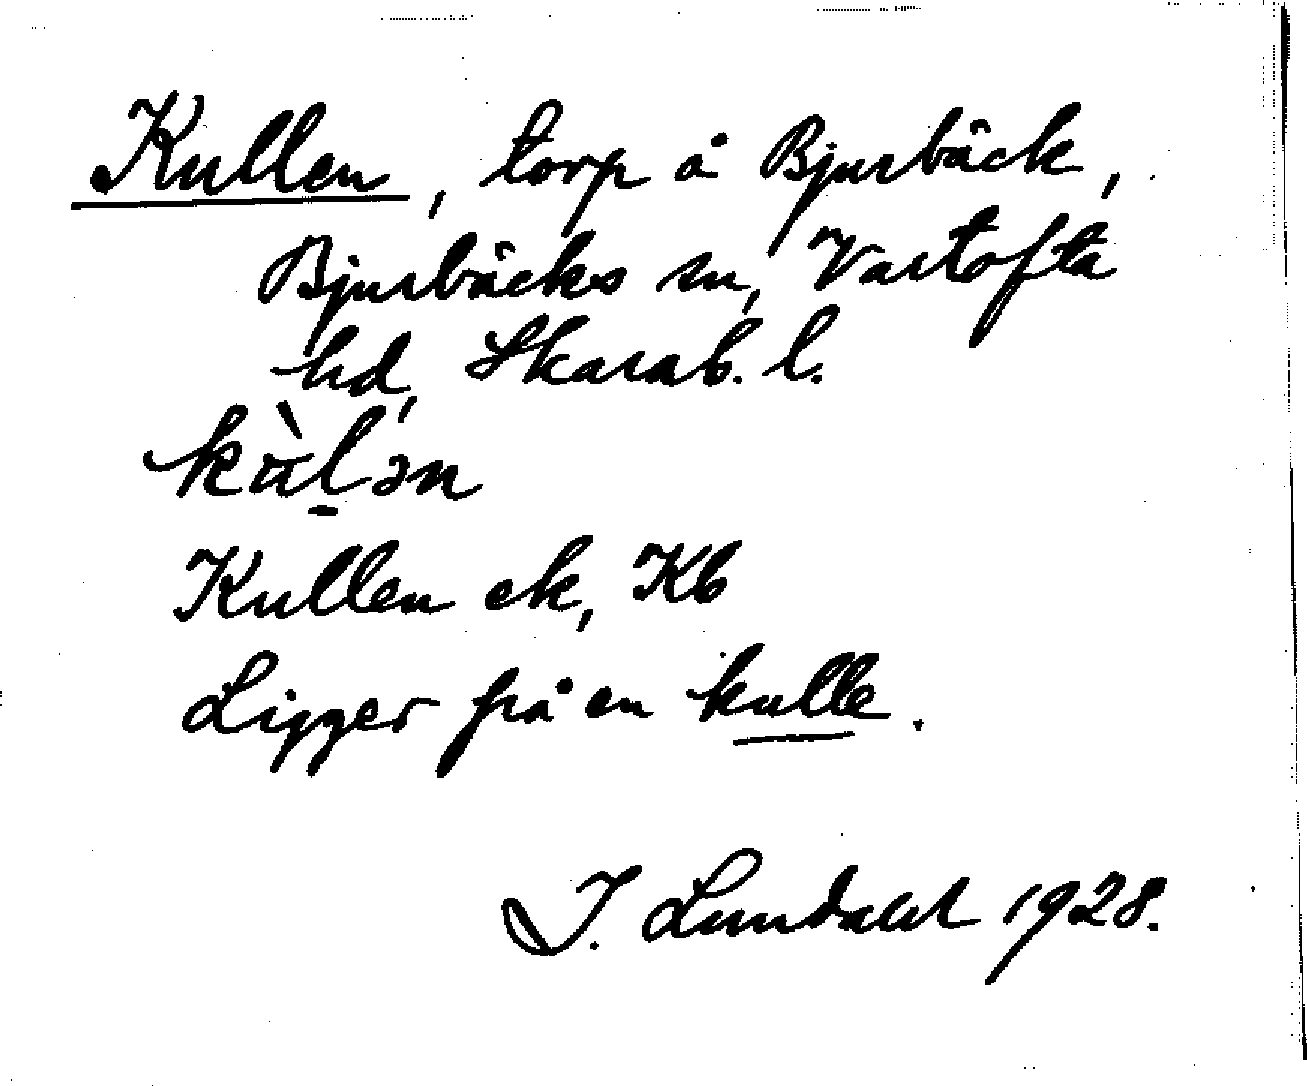 Kullen, torp å Bjurbäck,
Bjurbäcks sn, Vartofta
hd, Skarab. l.
kàl̠ən
Kullen ek, Kb
Ligger på en kulle.
J. Lundahl 1928.